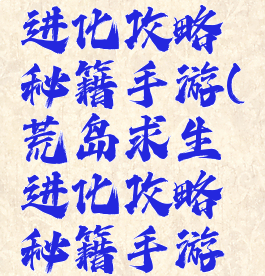 进化攻略
秘籍手游(
荒岛求生
进化攻略
秘籍手游